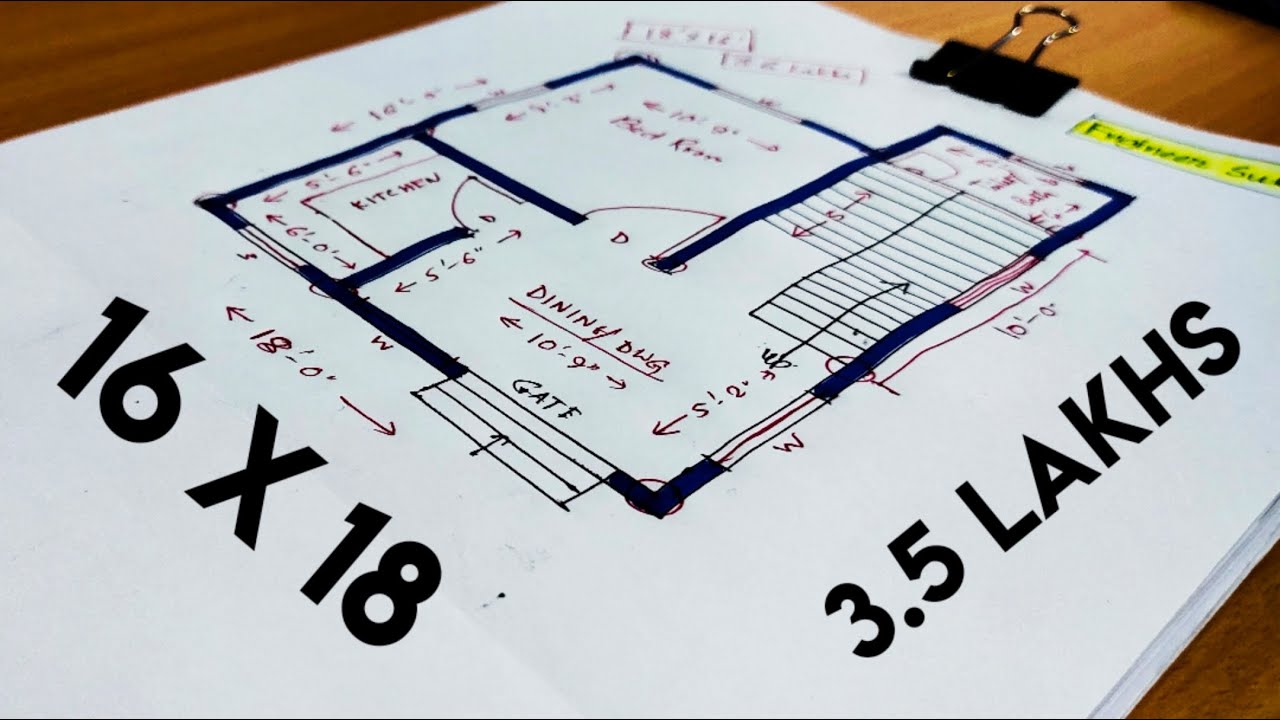 18'x16'
16'-0"
W
10'-0"
Bed Room
Engineer Su
5'-6"
KITCHEN
D
6'-0"
D
5'-6"
W
W
DINING/DWG
10'-9"
GATE
5'-2"
UP
W
W
10'-0"
18'-0"
16 X 18
3.5 LAKHS